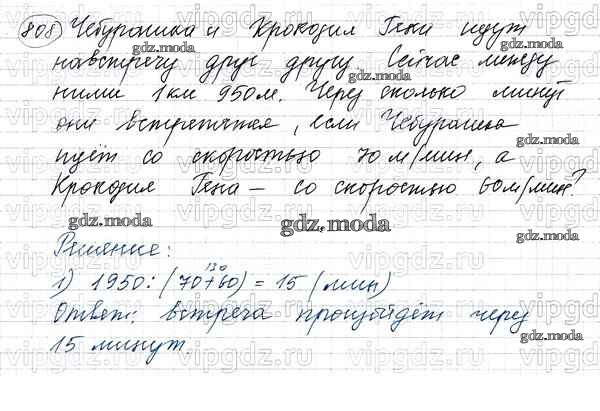 808) Чебурашка и Крокодил Гена идут
навстречу друг другу. Сейчас между
ними 1 км 950 м. Через сколько минут
они встретятся, если Чебурашка
идёт со скоростью 70 м/мин, а
Крокодил Гена – со скоростью 60 м/мин?
Решение:
130
1) 1950 : (70+60) = 15 (мин)
Ответ: встреча произойдёт через
15 минут.